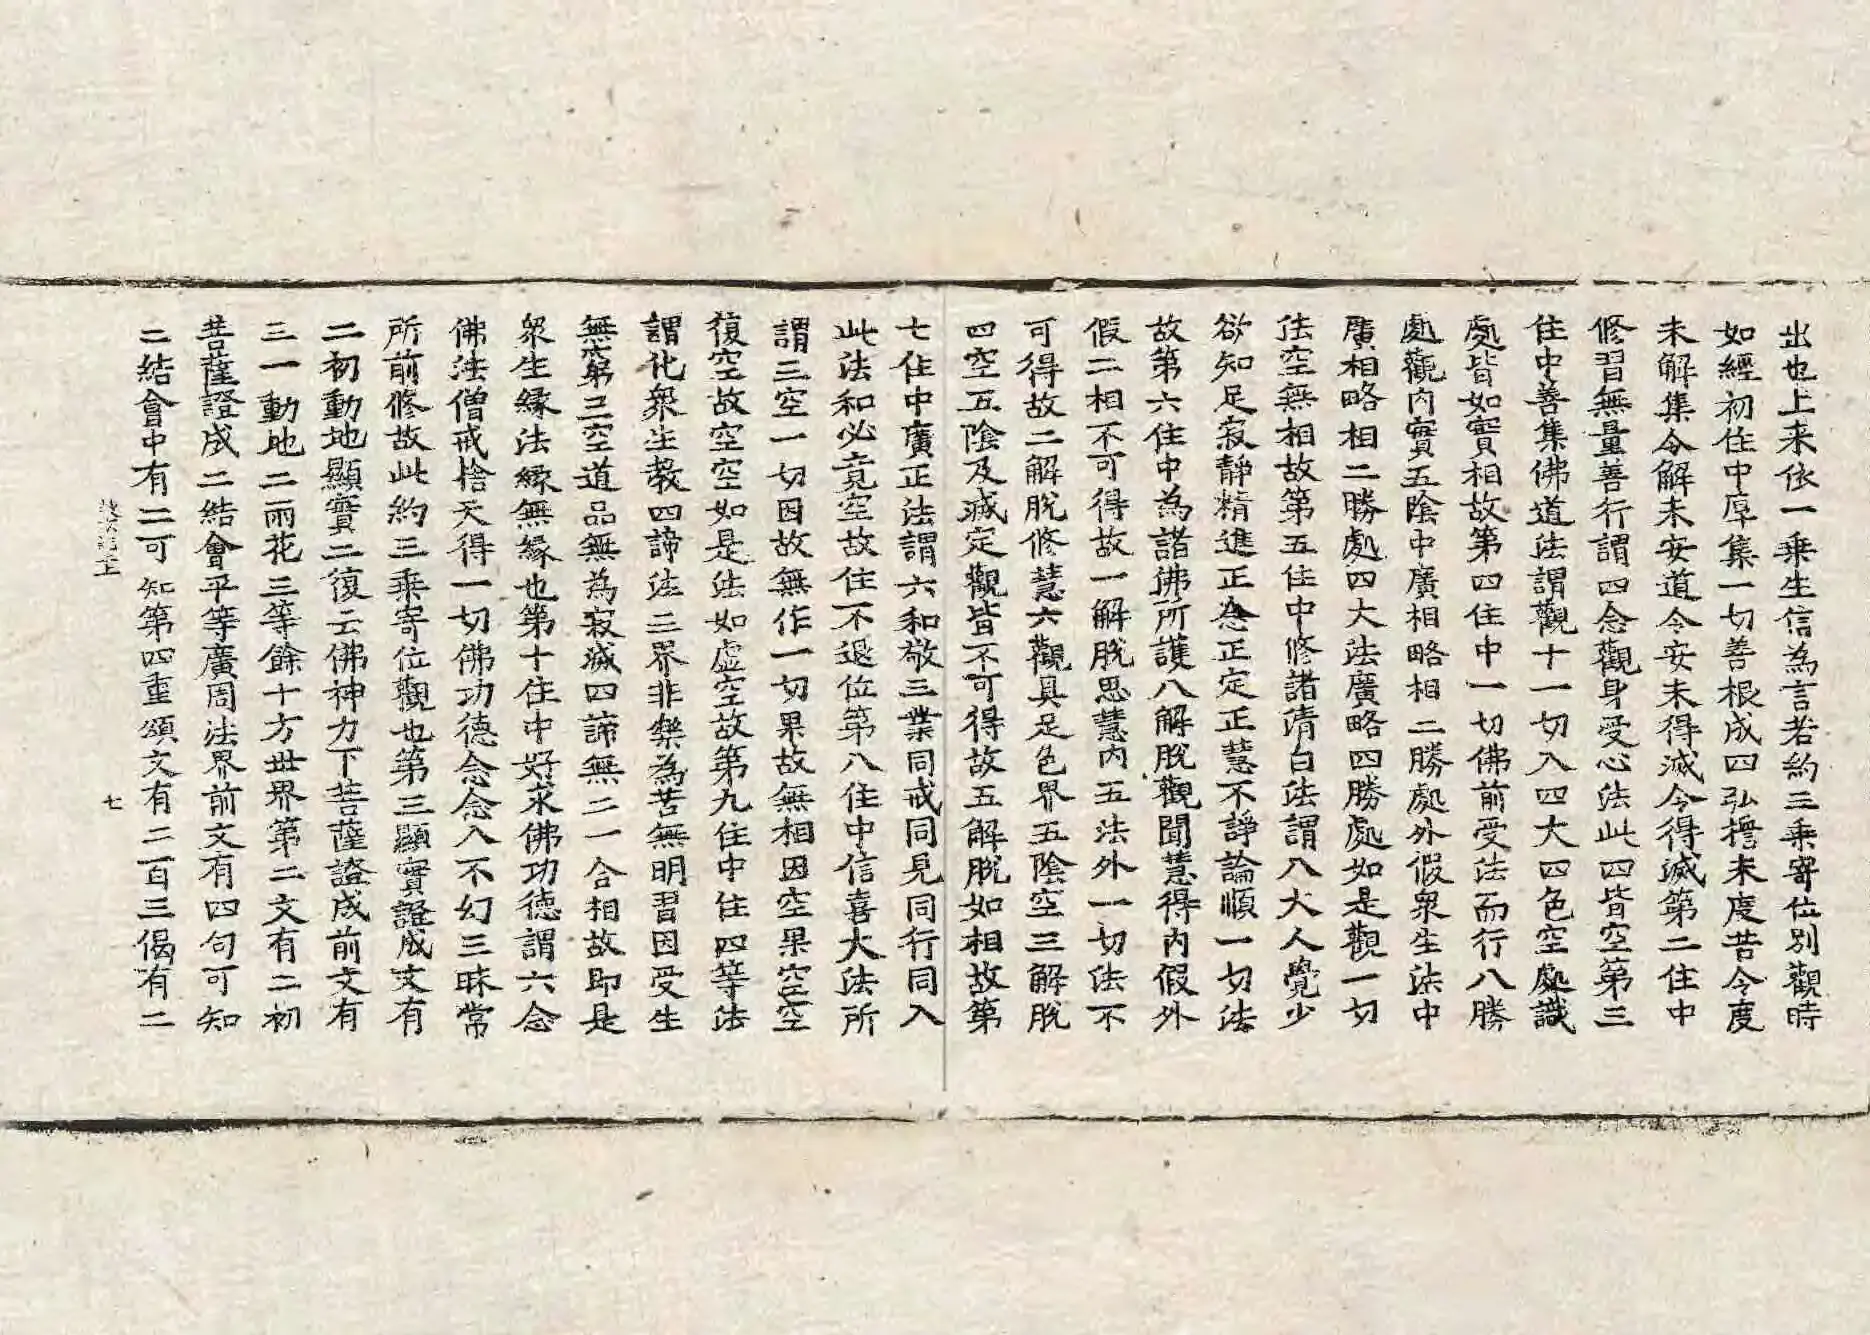 出也上来依一乘生信為言若約三乘寄位別觀時
如經初住中厚集一切善根成四弘擔未度苦令度
未解集令解未安道令安未得滅令得滅第二住中
修習無量善行謂四念觀身受心法此四皆空第三
住中善集佛道法謂觀十一切入四大四色空處識
處皆如實相故第四住中一切佛前受法而行八勝
處觀內實五陰中廣相略相二勝處外假衆生法中
廣相略相二勝處四大法廣略四勝處如是觀一切
法空無相故第五住中修諸清白法謂八大人覺少
欲知足寂靜精進正念正定正慧不諍論順一切法
故第六住中為諸佛所護八解脫觀聞慧得內假外
假二相不可得故一解脫思慧內五法外一切法不
可得故二解脫修慧六觀具足色界五陰空三解脫
四空五陰及滅定觀皆不可得故五解脫如相故第
七住中廣正法謂六和敬三業同戒同見同行同入
此法和必竟空故住不退位第八住中信喜大法所
謂三空一切因故無作一切果故無相因空果空空
復空故空空如是法如虛空故第九住中住四等法
謂化衆生教四諦法三界非樂為苦無明習因受生
無窮三空道品無為寂滅四諦無二一合相故即是
衆生緣法緣無緣也第十住中好求佛功德謂六念
佛法僧戒捨天得一切佛功德念念入不幻三昧常
所前修故此約三乘寄位觀也第三顯實證成文有
二初動地顯實二復云佛神力下菩薩證成前文有
三一動地二雨花三等餘十方世界第二文有二初
菩薩證成二結會平等廣周法界前文有四句可知
二結會中有二可知第四重頌文有二百三偈有二
七